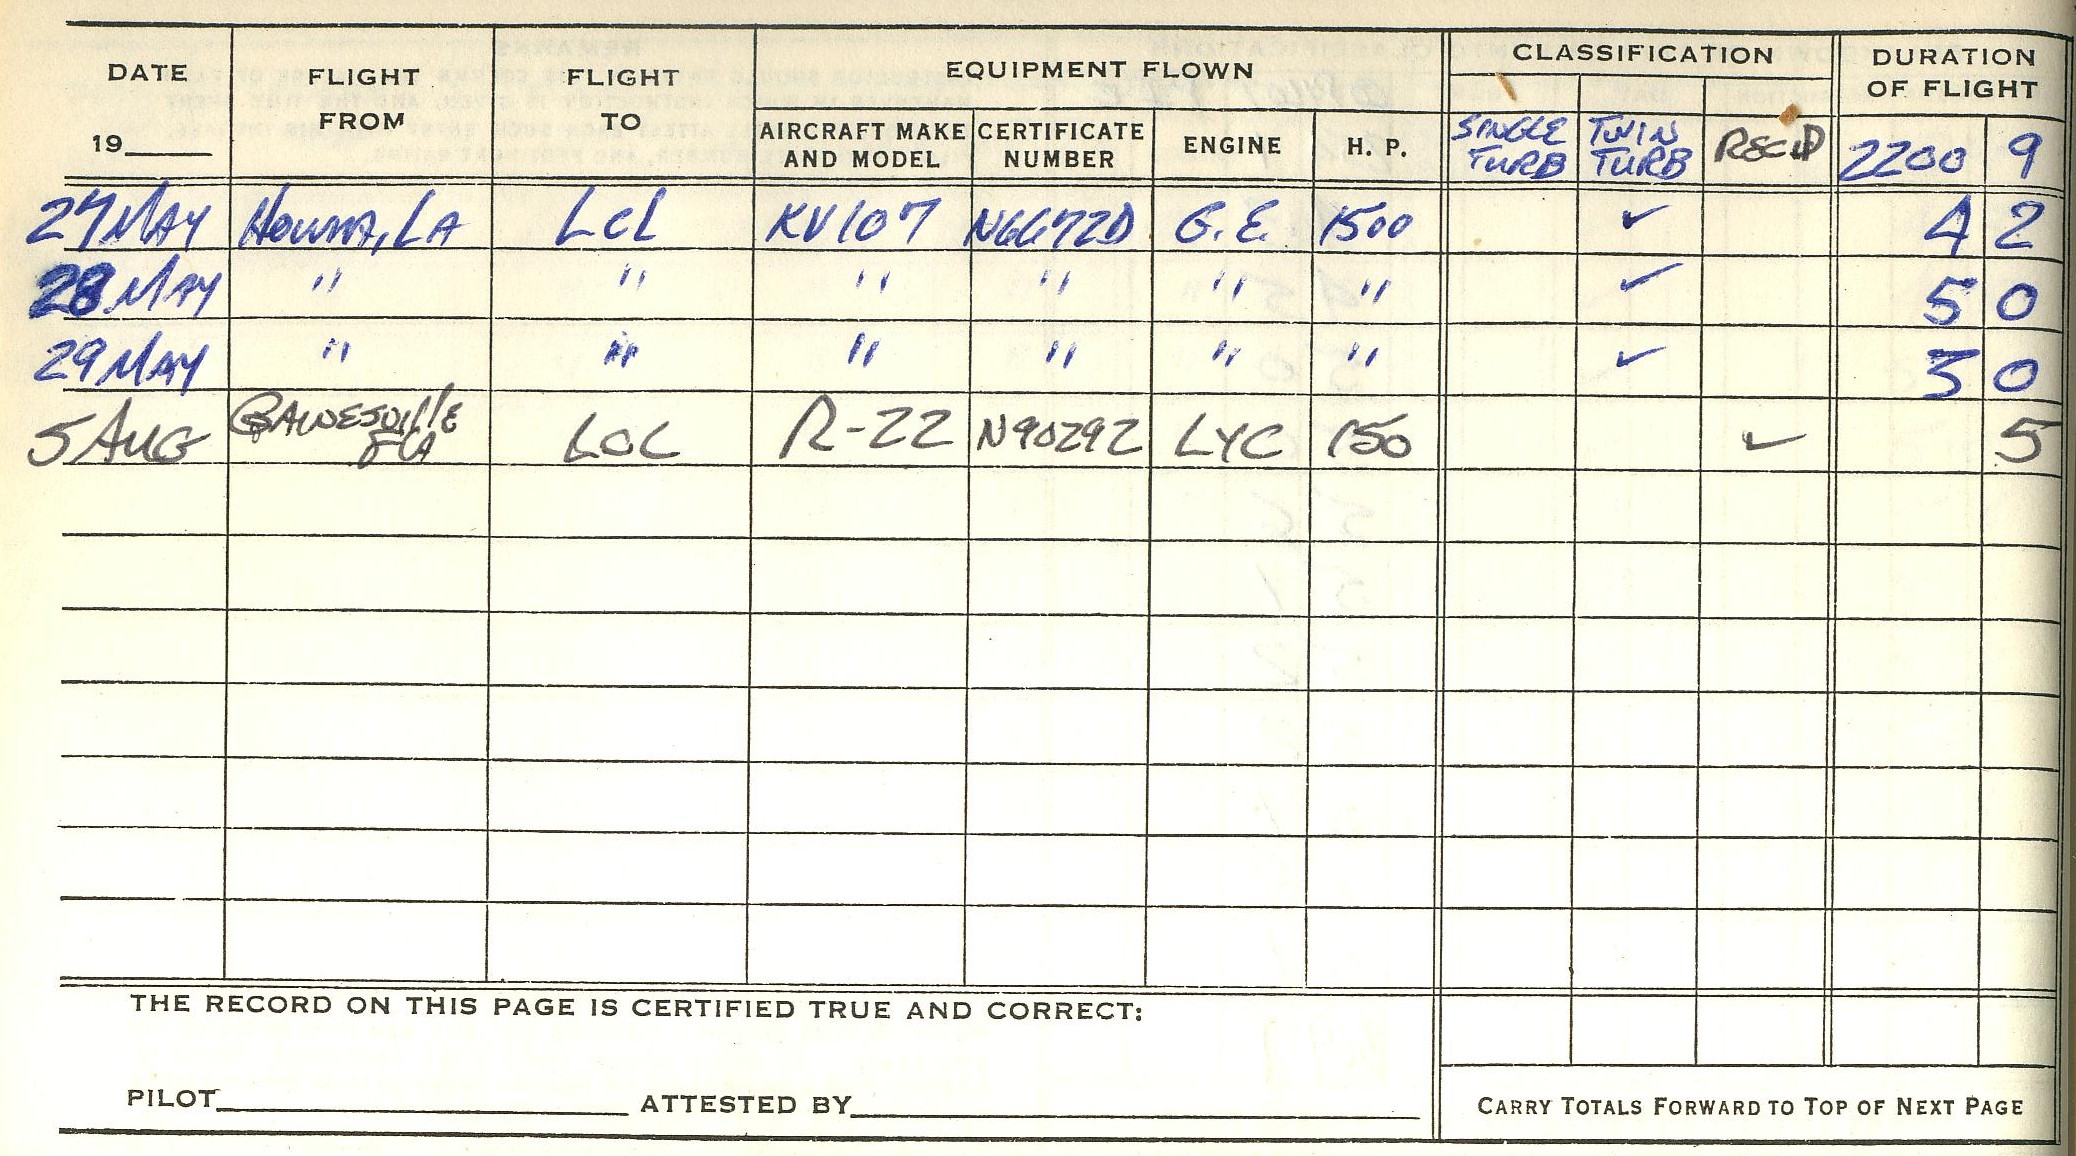 DATE FLIGHT FROM FLIGHT TO EQUIPMENT FLOWN CLASSIFICATION DURATION OF FLIGHT
19____ AIRCRAFT MAKE AND MODEL CERTIFICATE NUMBER ENGINE H. P. SINGLE TURB TWIN TURB RECIP 2200 9
27 MAY HOUMA, LA LCL KV107 N6672D G.E. 1500 ✓ 4 2
28 MAY " " " " " " ✓ 5 0
29 MAY " " " " " " ✓ 3 0
5 AUG GAINESVILLE FLA LCL R-22 N90292 LYC 150 ✓ 5
THE RECORD ON THIS PAGE IS CERTIFIED TRUE AND CORRECT:
PILOT____ ATTESTED BY____ CARRY TOTALS FORWARD TO TOP OF NEXT PAGE